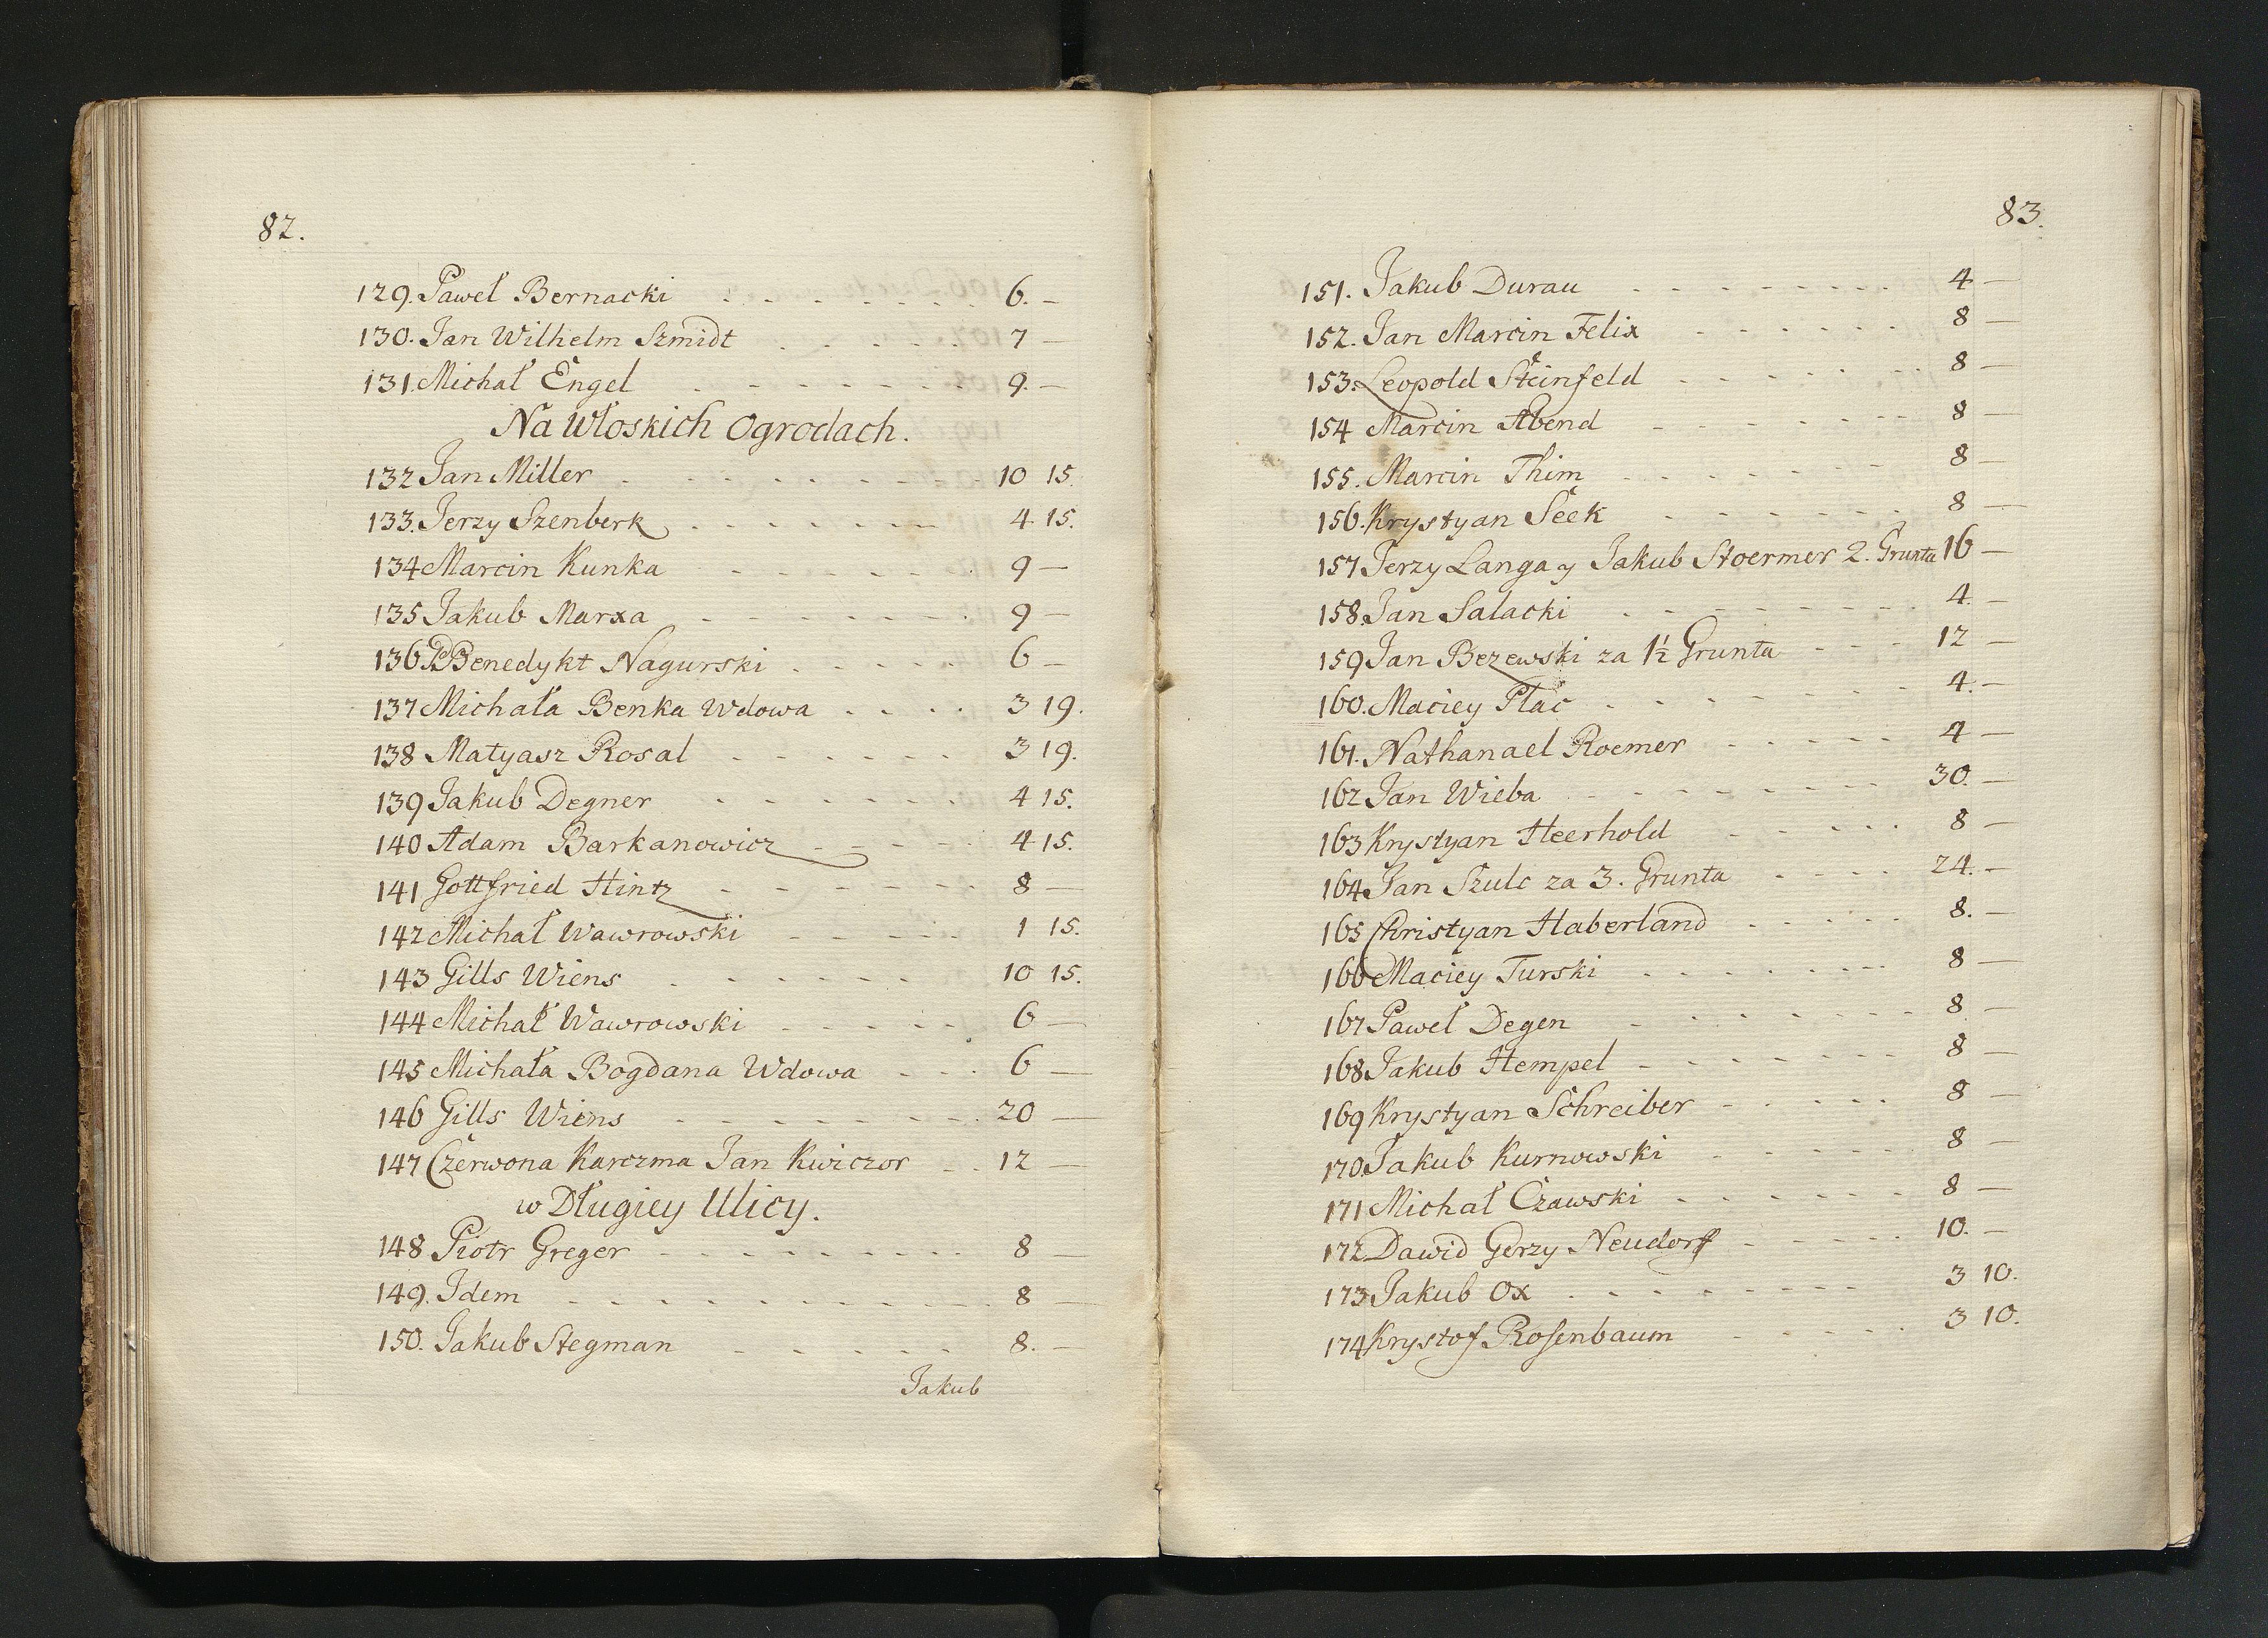 82.
129. Paweł Bernacki - - - - - - - 6. -
130. Jan Wilhelm Szmidt - - - - - 7 -
131. Michał Engel - - - - - - - 9. -
Na Włoskich Ogrodach.
132 Jan Miller - - - - - - - - - 10 15.
133. Jerzy Szenberk - - - - - - - 4 15.
134 Marcin Kunka - - - - - - 9 -
135 Jakub Marxa - - - - - - - 9 -
136 Benedykt Nagurski - - - - - 6 -
137 Michała Benka Wdowa - - - - 3 19.
138 Matyasz Rosal - - - - - - 3 19.
139 Jakub Degner - - - - - - 4 15.
140 Adam Barkanowicz - - - - - 4 15.
141 Gottfried Hintz - - - - - - - 8 -
142 Michał Wawrowski - - - - - 1 15.
143 Gills Wiens - - - - - - 10 15.
144 Michał Wawrowski - - - - - 6 -
145 Michała Bogdana Wdowa - - - 6 -
146 Gills Wiens - - - - - - - - 20 -
147 Czerwona Karczma Jan Kwiczor - - 12 -
w Długiey Ulicy.
148 Piotr Greger - - - - - - - - - 8 -
149. Idem - - - - - - - - - - - 8 -
150. Jakub Stegman - - - - - - 8. -
Jakub
83.
151. Jakub Durau - - - - - - - - 4 -
152. Jan Marcin Felix - - - - - - 8 -
153. Leopold Steinfeld - - - - - - - 8 -
154 Marcin Abend - - - - - - - 8 -
155. Marcin Thim - - - - - - - 8 -
156. Krystyan Seek - - - - - - - 8 -
157 Jerzy Langa y Jakub Stoermer 2. Grunta 16 -
158. Jan Salacki - - - - - - - - 4. -
159 Jan Bezewski za 1½ Grunta - - - 12 -
160. Maciey Płac - - - - - - - - 4. -
161. Nathanael Roemer - - - - - 4 -
162 Jan Wieba - - - - - - - - 30. -
163 Krystyan Heerhold - - - - - 8 -
164 Jan Szulc za 3. Grunta - - - - 24. -
165 Christyan Haberland - - - - - 8. -
166 Maciey Turski - - - - - - - 8 -
167 Paweł Degen - - - - - - - - 8 -
168 Jakub Hempel - - - - - - - 8 -
169 Krystyan Schreiber - - - - - 8 -
170. Jakub Kurnowski - - - - - 8 -
171 Michał Czawski - - - - - - 8 -
172 Dawid Gerzy Neudorff - - - - - 10. -
173 Jakub Ox - - - - - - - - 3 10.
174 Krystof Rosenbaum - - - - - 3 10.